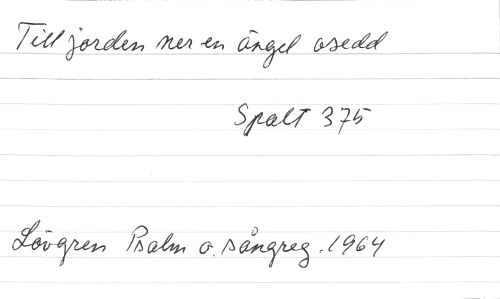 Till jorden ner en ängel osedd
Spalt 375
Lövgren Psalm o. sångreg. 1964